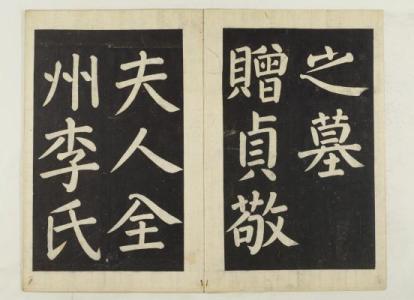 之墓
贈貞敬
夫人全
州李氏